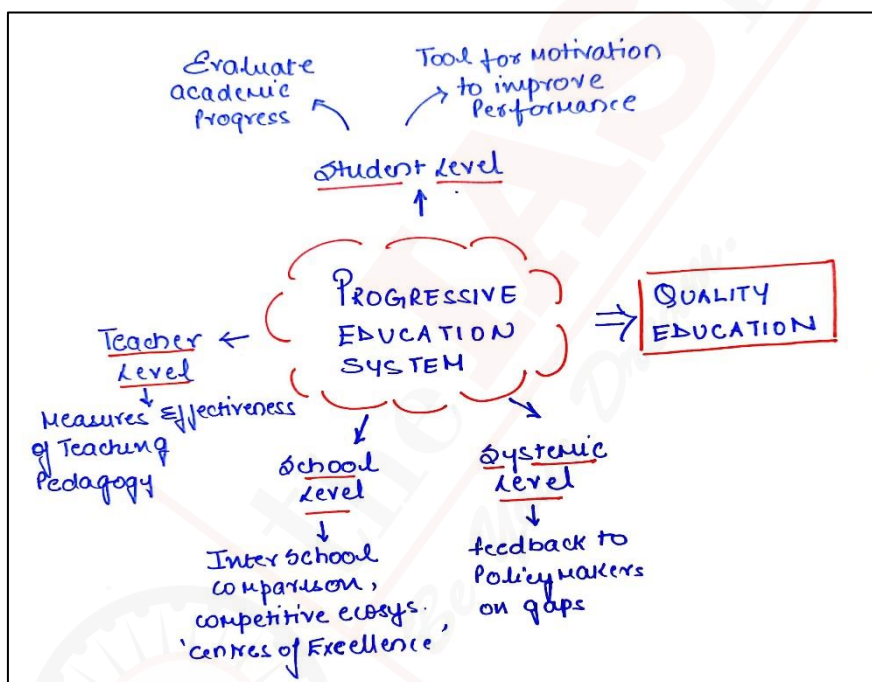 Evaluate
academic
Progress
Tool for Motivation
to improve
Performance
Student Level
PROGRESSIVE
EDUCATION
SYSTEM
QUALITY
EDUCATION
Teacher
Level
Measures Effectiveness
of Teaching
Pedagogy
School
Level
Inter School
comparison,
competitive ecosys.
'centres of Excellence',
Systemic
Level
feedback to
Policymakers
on gaps